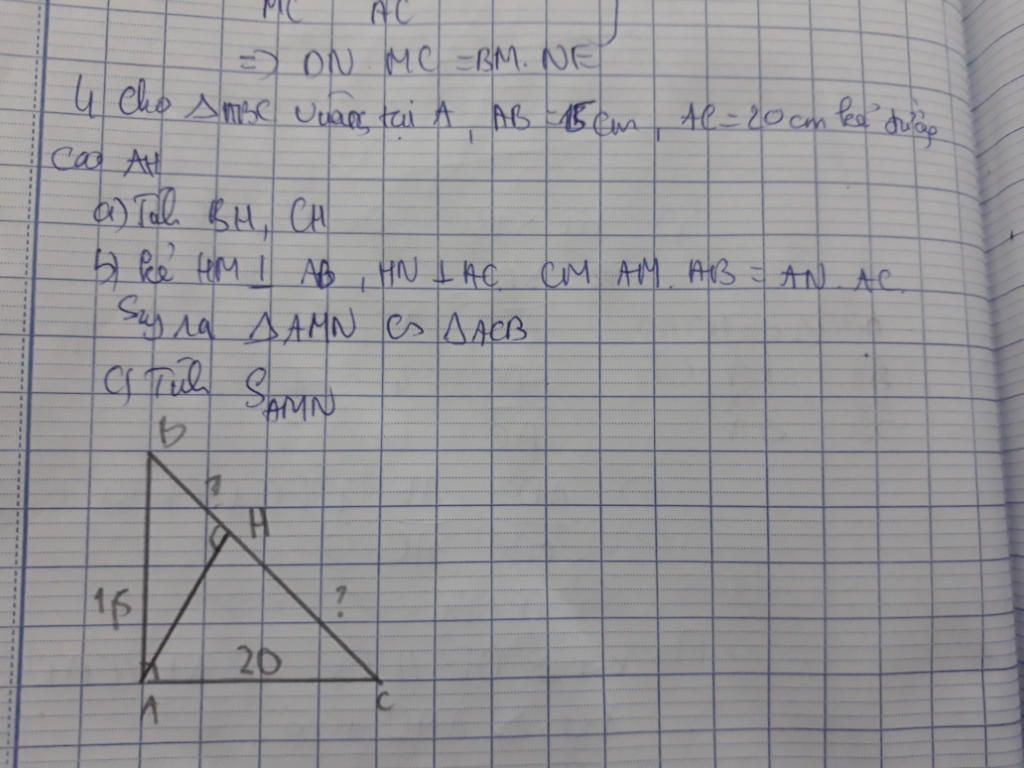 MC AC
=> DN. MC = BM. NE
4 Cho ΔABC vuông tại A, AB = 15 cm, AC = 20 cm kẻ đường
cao AH
a) Tính BH, CH
b) kẻ HM ⊥ AB, HN ⊥ AC. CM AM. AB = AN. AC.
Suy ra ΔAMN ∽ ΔACB
c) Tính S_AMN
B
?
H
15
?
20
A
C